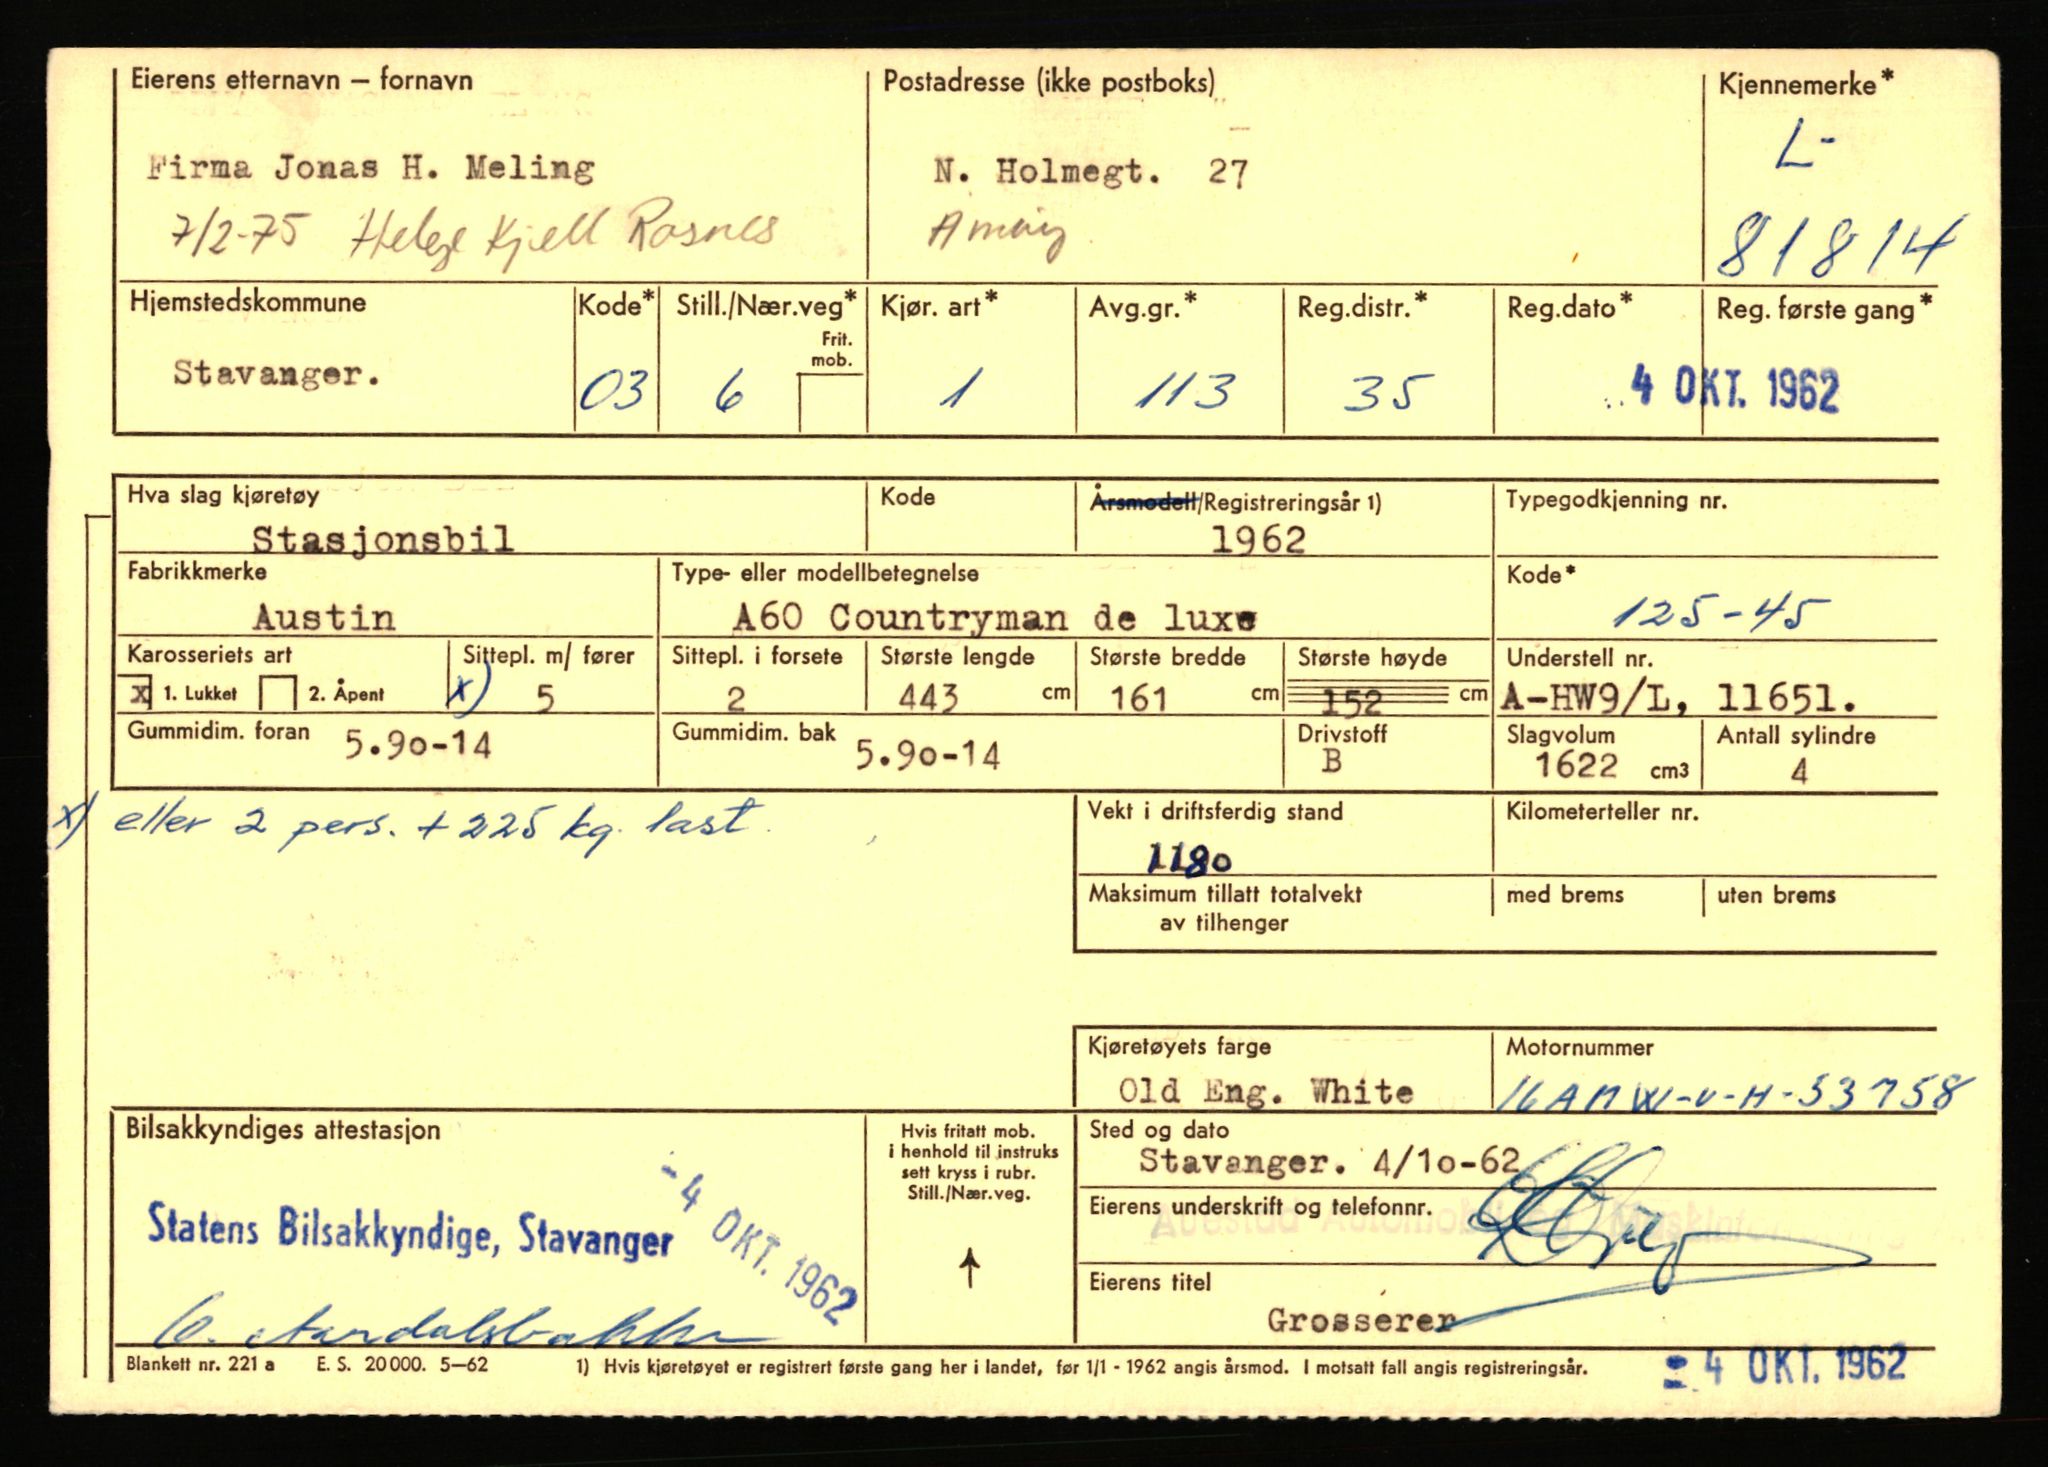 Eierens etternavn – fornavn
Postadresse (ikke postboks)
Kjennemerke*
Firma Jonas H. Meling
N. Holmegt. 27
L-
7/2-75 Helge Kjell Rosnes
81814
Hjemstedskommune
Kode*
Still./Nær.veg*
Kjør. art*
Avg.gr.*
Reg.distr.*
Reg.dato*
Reg. første gang*
Frit.
mob.
Stavanger.
03
6
1
113
35
4 OKT. 1962
Hva slag kjøretøy
Kode
Årsmodell/Registreringsår 1)
Typegodkjenning nr.
Stasjonsbil
1962
Fabrikkmerke
Type- eller modellbetegnelse
Kode*
Austin
A60 Countryman de luxe
125-45
Karosseriets art
Sittepl. m/ fører
Sittepl. i forsete
Største lengde
Største bredde
Største høyde
Understell nr.
x 1. Lukket 2. Åpent
x) 5
2
443 cm
161 cm
152 cm
A-HW9/L, 11651.
Gummidim. foran
5.90-14
Gummidim. bak
5.90-14
Drivstoff
B
Slagvolum
1622 cm3
Antall sylindre
4
x) eller 2 pers. + 225 kg. last
Vekt i driftsferdig stand
Kilometerteller nr.
1180
Maksimum tillatt totalvekt
av tilhenger
med brems
uten brems
Kjøretøyets farge
Motornummer
Old Eng. White
16AMW-U-H-53758
Bilsakkyndiges attestasjon
Hvis fritatt mob.
i henhold til instruks
sett kryss i rubr.
Still./Nær.veg.
Sted og dato
Stavanger. 4/10-62
- 4 OKT. 1962
Statens Bilsakkyndige, Stavanger
Eierens underskrift og telefonnr.
Eierens titel
Grosserer
Blankett nr. 221 a E. S. 20000. 5–62
1) Hvis kjøretøyet er registrert første gang her i landet, før 1/1 - 1962 angis årsmod. I motsatt fall angis registreringsår.
4 OKT. 1962